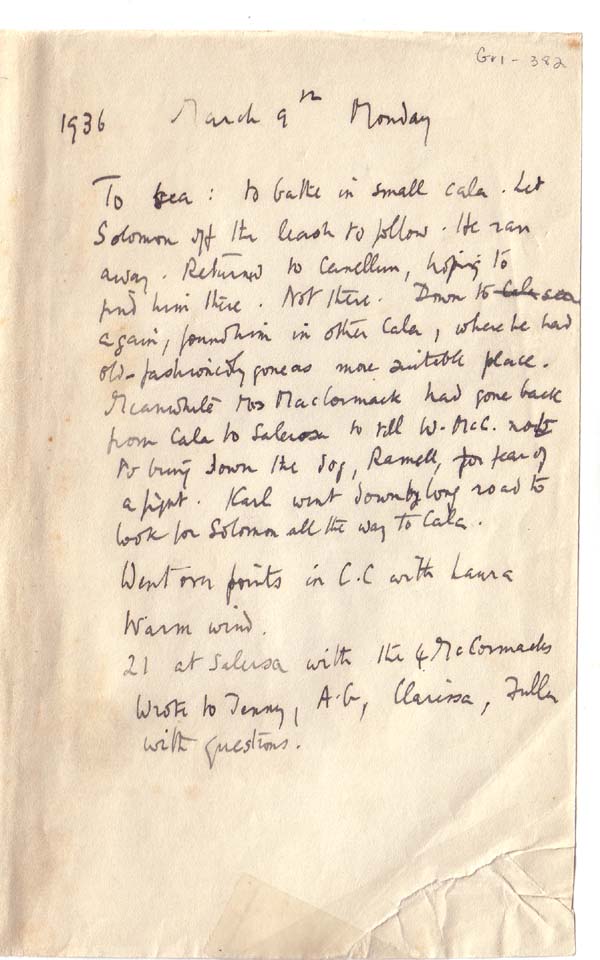 Gv1 - 382
1936 March 9th Monday
To sea : to bathe in small cala. Let
Solomon off the leash to follow. He ran
away. Returned to Canellun, hoping to
find him there. Not there. Down to Cala sea
again, found him in other Cala, where he had
old-fashionedly gone as more suitable place.
Meanwhile Mrs MacCormack had gone back
from Cala to Salerosa to tell W. McC. not
to bring down the dog, Ramell, for fear of
a fight. Karl went down by long road to
look for Solomon all the way to Cala.
Went over points in C.C with Laura
Warm wind.
21 at Salerosa with the 4 McCormacks
Wrote to Jenny, A.G, Clarissa,
with questions.